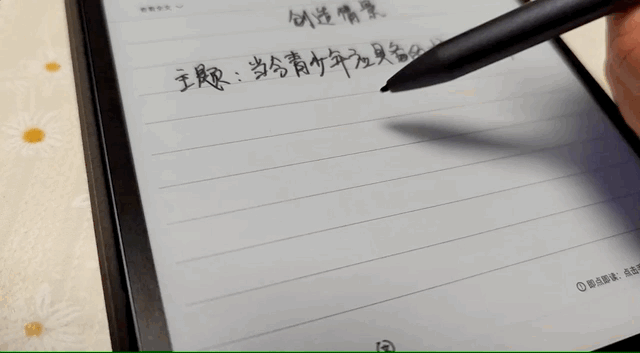 创造情景
主题：当今青少年应具备的
① 即点即读：点击